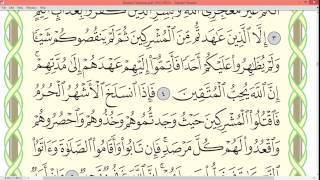 أَنَّكُمْ غَيْرُ مُعْجِزِي ٱللَّهِ وَبَشِّرِ ٱلَّذِينَ كَفَرُوا۟ بِعَذَابٍ
٣ إِلَّا ٱلَّذِينَ عَٰهَدتُّم مِّنَ ٱلْمُشْرِكِينَ ثُمَّ لَمْ يَنقُصُوكُمْ شَيْـًٔا
وَلَمْ يُظَٰهِرُوا۟ عَلَيْكُمْ أَحَدًا فَأَتِمُّوٓا۟ إِلَيْهِمْ عَهْدَهُمْ إِلَىٰ مُدَّتِهِمْ
إِنَّ ٱللَّهَ يُحِبُّ ٱلْمُتَّقِينَ ٤ فَإِذَا ٱنسَلَخَ ٱلْأَشْهُرُ ٱلْحُرُمُ
فَٱقْتُلُوا۟ ٱلْمُشْرِكِينَ حَيْثُ وَجَدتُّمُوهُمْ وَخُذُوهُمْ وَٱحْصُرُوهُمْ
وَٱقْعُدُوا۟ لَهُمْ كُلَّ مَرْصَدٍ فَإِن تَابُوا۟ وَأَقَامُوا۟ ٱلصَّلَوٰةَ وَءَاتَوُا۟